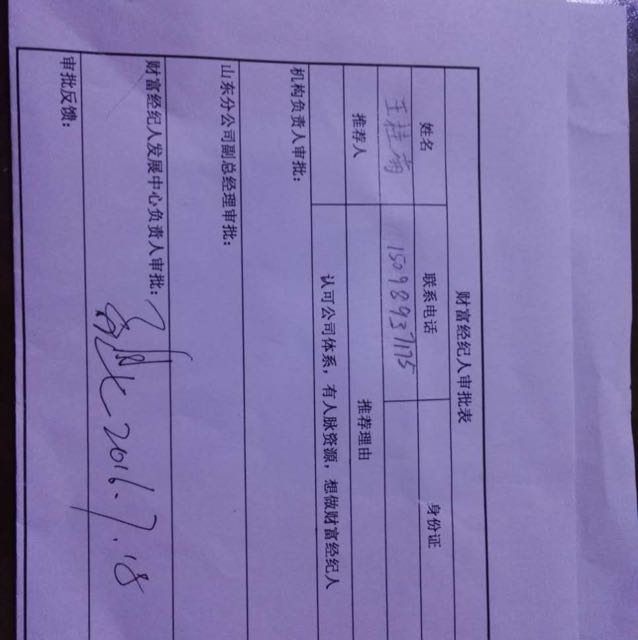 财富经纪人审批表
姓名 联系电话 身份证
王桂菊 15098937175
推荐人 推荐理由
认可公司体系，有人脉资源，想做财富经纪人
机构负责人审批：
山东分公司副总经理审批：
财富经纪人发展中心负责人审批：
2016.7.18
审批反馈：